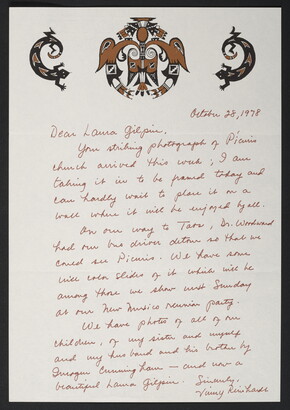 October 28, 1978
Dear Laura Gilpin,
Your striking photograph of Picuris
church arrived this week; I am
taking it in to be framed today and
can hardly wait to place it on a
wall where it will be enjoyed by all.
On our way to Taos, Dr. Woodward
had our bus driver detour so that we
could see Picuris. We have some
nice color slides of it which will be
among those we show next Sunday
at our New Mexico reunion party.
We have photos of all of our
children, of my sister and myself
and my husband and his brother by
Imogen Cunningham — and now a
beautiful Laura Gilpin. Sincerely,